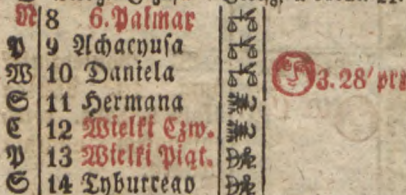 N 8 6. Palmar
P 9 Achacyusa
W 10 Daniela 3. 28'
S 11 Hermana
C 12 Wielki Czw.
P 13 Wielki Piąt.
S 14 Tyburceao